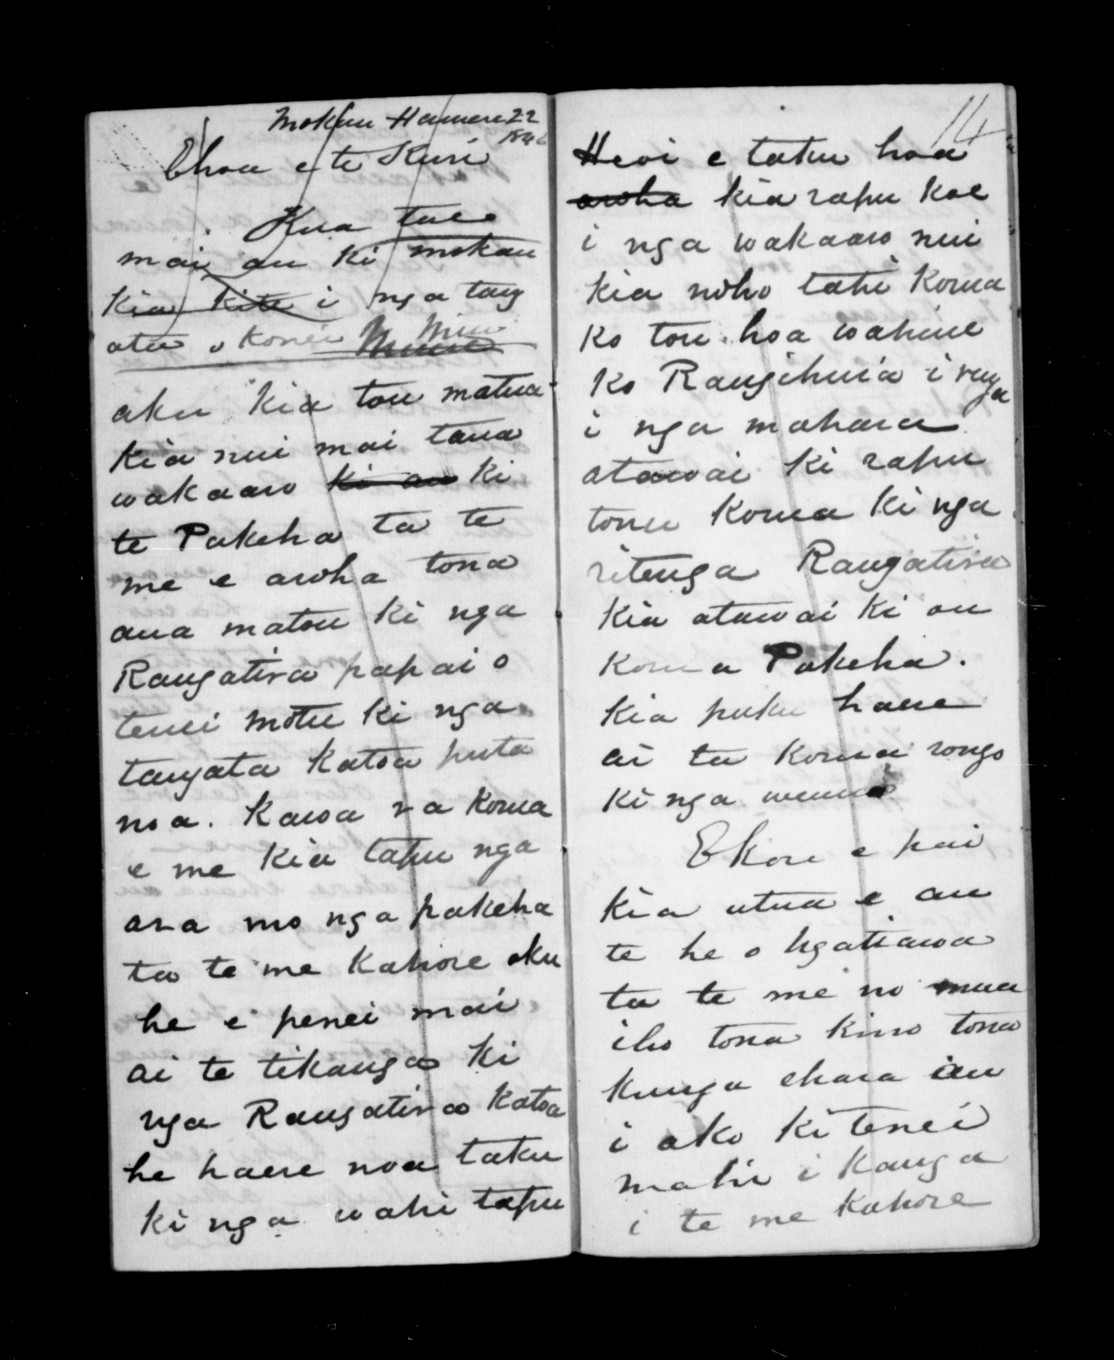 Mokau Hanuere 22
184
Ehoa e te Kuri
Kua tae
mai au ki mokau
Kia kite i nga tang
ata o Konei
aku kia tou matua
kia nui mai tana
wakaaro ki au ki
te Pakeha ta te
me e aroha tona
ana matou ki nga
Rangatira papai o
tenei motu ki nga
tangata katoa puta
noa. Kawa ra koma
e me kia tapu nga
ara mo nga pakeha
ta te me kahore oku
he e penei mai
ai te tikanga ki
nga Rangatira katoa
he haere noa taku
ki nga wahi tapu
14
Heoi e taku hoa
aroha kia rapu koe
i nga wakaaro nui
kia noho tahi koma
ko tou hoa wahine
ko Rangihuia i runga
i nga mahara
atawai ki rapu
tonu koma ki nga
ritenga Rangatira
kia atawai ki au
koma Pakeha.
kia puku haere
ai ta koma rongo
ki nga
Ekore e pai
kia utua e au
te he o Ngatiawa
ta te me no mua
iho tona kino tona
kunga ehara iau
i ako ki tenei
mahi i Kanga
i te me kahore